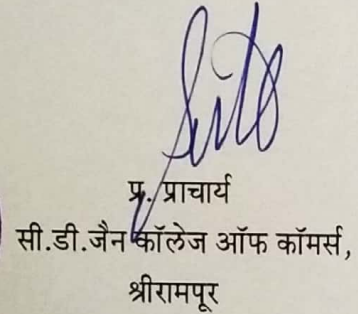 प्र. प्राचार्य
सी.डी.जैन कॉलेज ऑफ कॉमर्स,
श्रीरामपूर